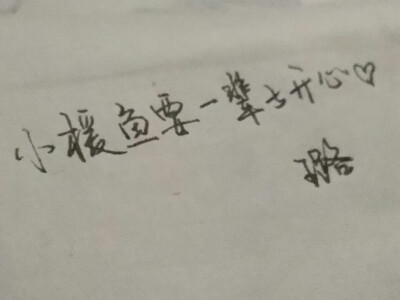 小媛鱼要一辈子开心♡
璐